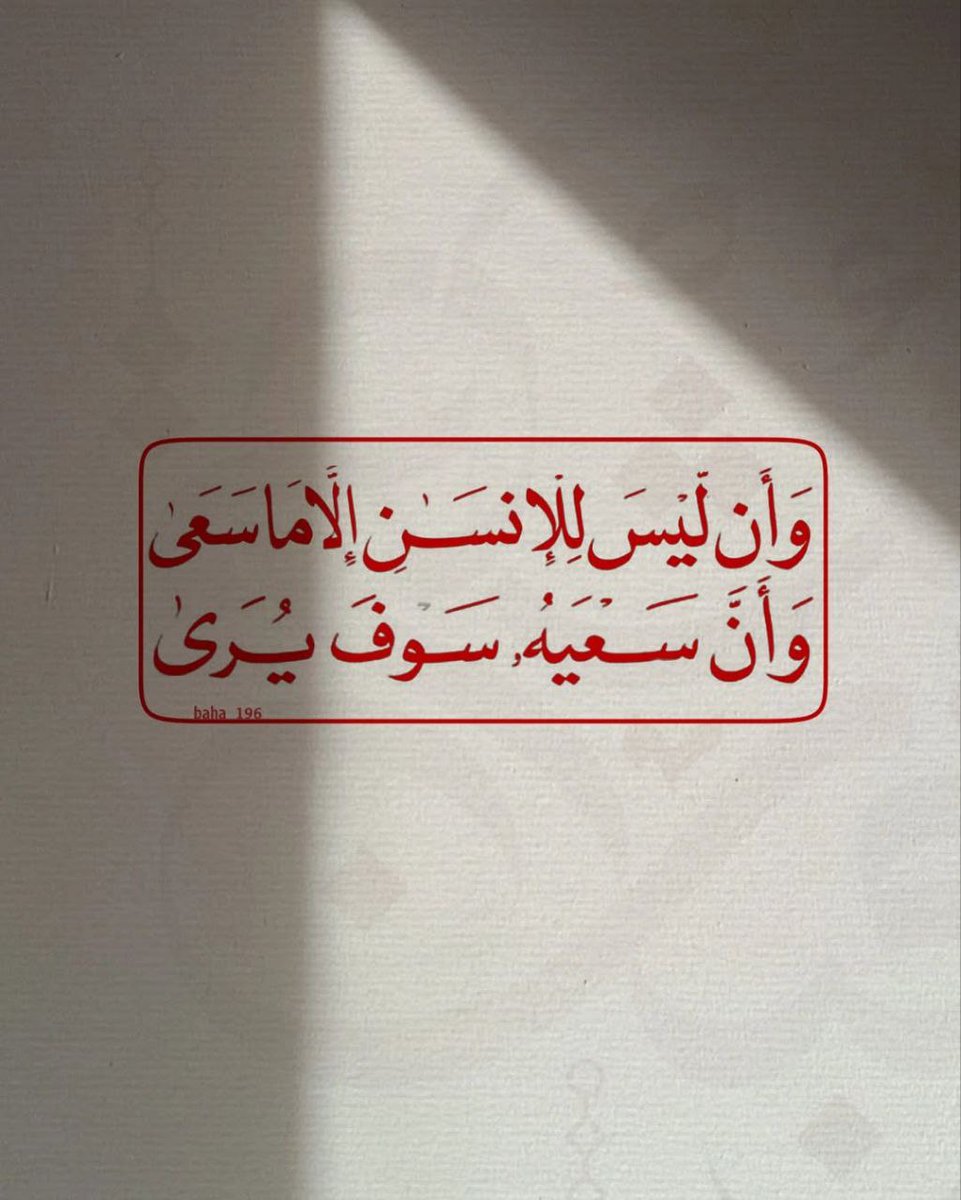 وَأَن لَّيْسَ لِلْإِنسَـٰنِ إِلَّا مَا سَعَىٰ
وَأَنَّ سَعْيَهُۥ سَوْفَ يُرَىٰ
baha 196